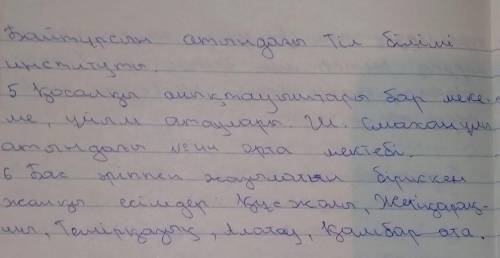 Байтұрсын атындағы Тіл білімі
институты.
5 Қосалқы анықтауыштары бар мекe-
ме, ұйым атаулары. Ш. Смаханұлы
атындағы №44 орта мектебі.
6 Бас әріппен жазылатын біріккен
жалқы есімдер Құсжолы, Жетіқарақ-
шы, Темірқазық, Алатау, Қамбар ата.